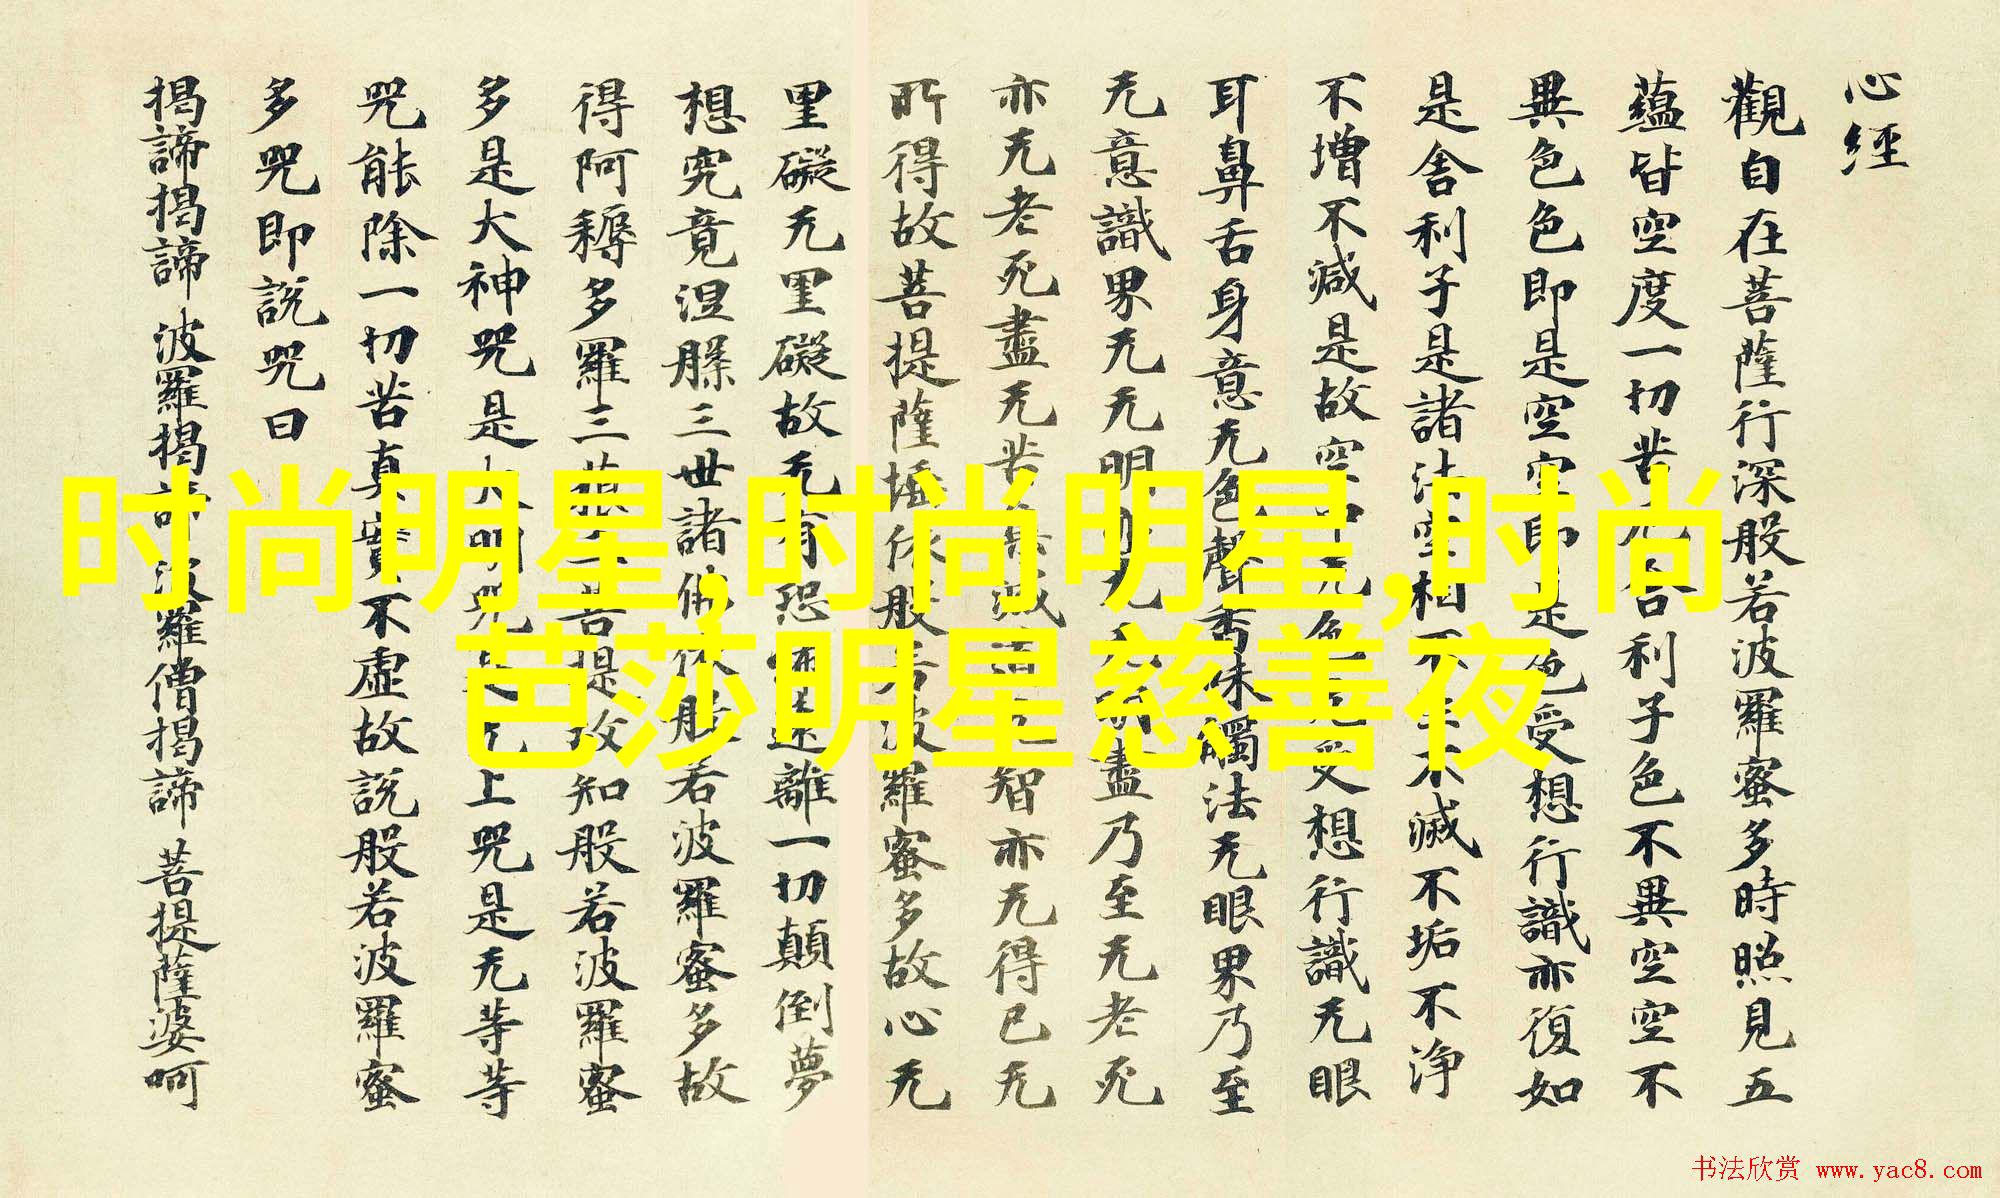 心經
觀自在菩薩行深般若波羅蜜多時照見五
蘊皆空度一切苦
舍利子色不異空空不
異色色即是空空即是色受想行識亦復如
是舍利子是諸法空相不生不滅不垢不淨
不增不減是故空中无色无受想行識无眼
耳鼻舌身意无色聲香味觸法无眼界乃至
无意識界无无明
盡乃至无老死
亦无老死盡无苦
智亦无得已无
所得故菩提薩埵依般若波羅蜜多故心无
罣礙无罣礙故无有恐
遠離一切顛倒夢
想究竟涅槃三世諸佛依般若波羅蜜多故
得阿耨多羅三藐三菩提故知般若波羅蜜
多是大神咒是大明咒是无上咒是无等等
咒能除一切苦真實不虛故說般若波羅蜜
多咒即說咒曰
揭諦揭諦 波羅揭諦 波羅僧揭諦 菩提薩婆呵
时尚明星,时尚明星,时尚
芭莎明星慈善夜
书法欣赏 www.yac8.com